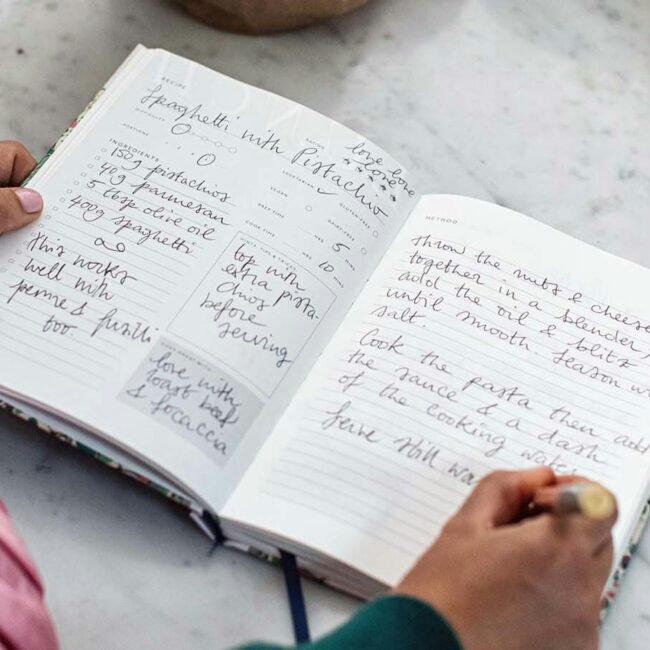 RECIPE
Spaghetti with Pistachio
DIFFICULTY
RATING
love love
love
PORTIONS
VEGETARIAN
VEGAN
GLUTEN FREE
DAIRY FREE
PREP TIME
HRS 5 MINS
COOK TIME
HRS 10 MINS
INGREDIENTS
150g pistachios
40g parmesan
5 tbsp olive oil
400g spaghetti
this works
well with
penne & fusilli
too.
HINTS, TIPS & TRICKS
top with
extra pista-
chios
before
serving
GOES GREAT WITH
love with
roast beef
& focaccia
METHOD
throw the nuts & cheese
together in a blender,
add the oil & blitz
until smooth. Season w
salt.
Cook the pasta then add
the sauce & a dash
of the cooking wate
Serve still wa